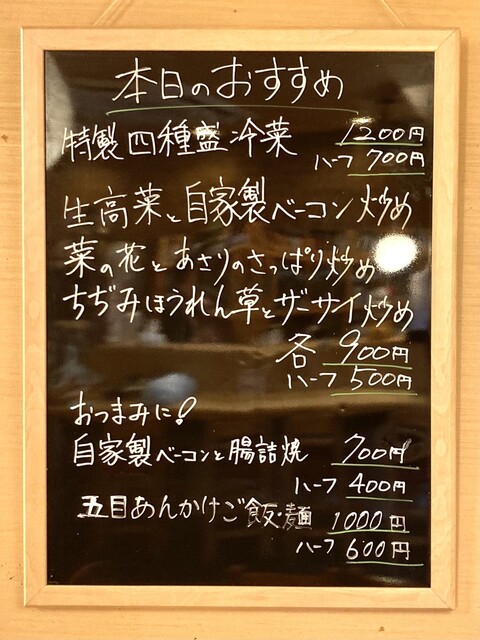 本日のおすすめ
特製四種盛冷菜 1200円
ハーフ 700円
生高菜と自家製ベーコン炒め
菜の花とあさりのさっぱり炒め
ちぢみほうれん草とザーサイ炒め
各 900円
ハーフ 500円
おつまみに!
自家製ベーコンと腸詰焼 700円
ハーフ 400円
五目あんかけご飯・麺 1000円
ハーフ 600円